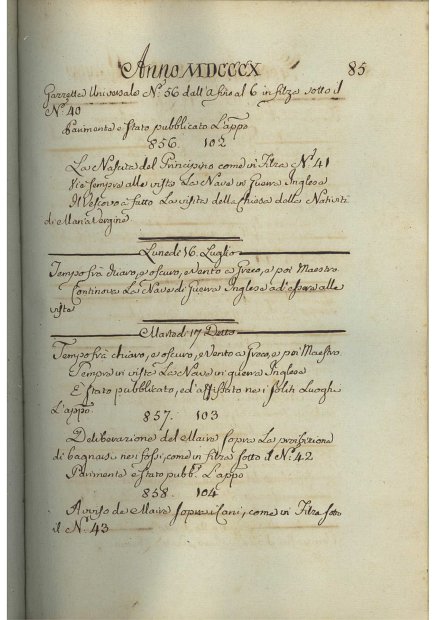 Anno MDCCCX 85
Gazzetta Universale N.° 56 dall'A fino al 6 in filza sotto il
N.° 40
Pavimente è stato pubblicato L'appo
856. 102
La Nascita del Principino come in Filza N.° 41
Vie sempre alle viste La Nave in Guerra Inglese
Il Vescovo à fatto La visita della Chiesa della Natività
di Maria Vergine
Lunedi 16. Luglio
Tempo frà chiaro, e oscuro, e Vento a Greco, e poi Maestro
Continova La Nave di Guerra Inglese ad essere alle
viste
Martedi 17 Detto
Tempo frà chiaro, e oscuro, e Vento a Greco, e poi Maestro
Sempre in vista La Nave in guerra Inglese
E' stato pubblicato, ed affissato nei soliti Luoghi
L'appo
857. 103
Deliberazione del Maire sopra La proibizione
di bagnarsi nei fossi, come in filza sotto il N.° 42
Pavimente è stato pubb.° L'appo
858. 104
Avviso del Maire sopra i Cani, come in Filza sotto
il N.° 43